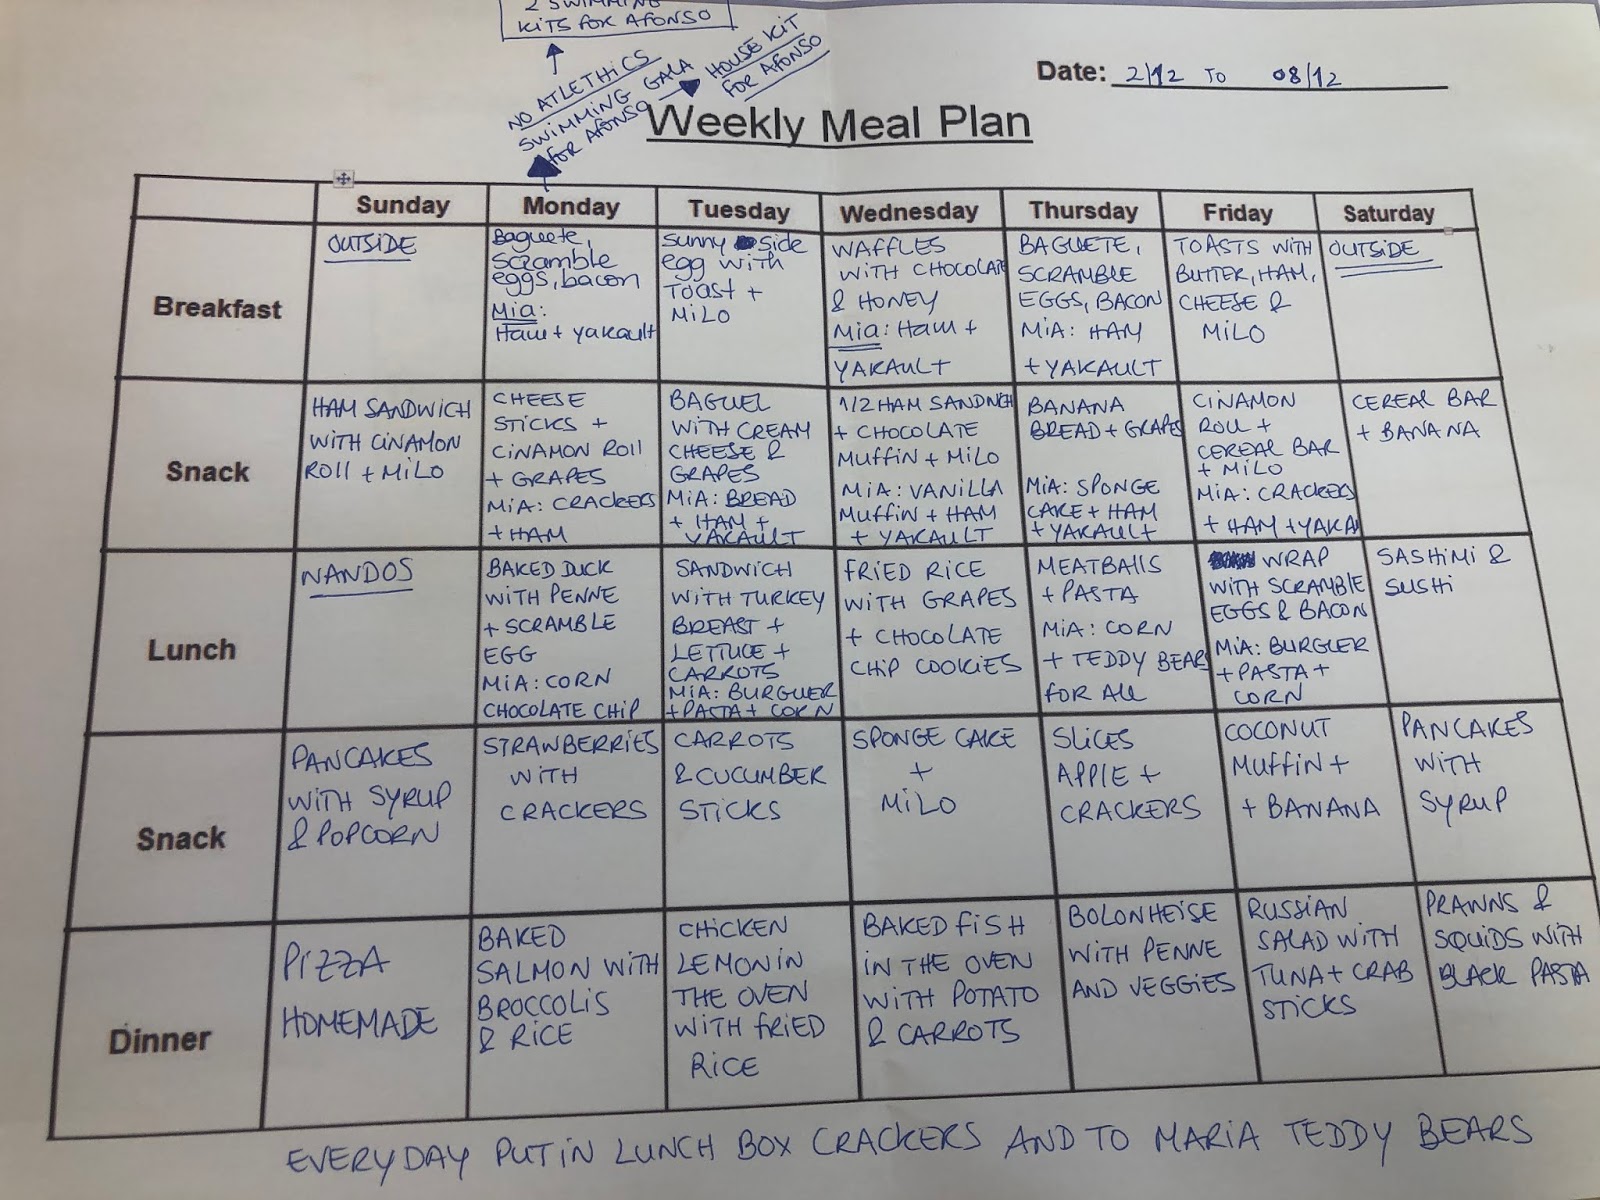 2 SWIMMING
KITS FOR AFONSO
NO ATLETHICS
SWIMMING GALA
FOR AFONSO
HOUSE KIT
FOR AFONSO
Date: 2/12 TO 08/12
Weekly Meal Plan
Sunday Monday Tuesday Wednesday Thursday Friday Saturday
Breakfast
OUTSIDE
Baguete,
scramble
eggs, bacon
Mia:
Ham + yakault
Sunny side
egg with
toast +
MiLO
WAFFLES
WITH CHOCOLATE
& HONEY
Mia: Ham +
YAKAULT
BAGUETE,
SCRAMBLE
EGGS, BACON
MiA: HAM
+ YAKAULT
TOASTS WITH
BUTTER, HAM,
CHEESE &
MiLO
OUTSiDE
Snack
HAM SANDWICH
WITH CINAMON
ROLL + MiLO
CHEESE
STICKS +
CiNAMON ROLL
+ GRAPES
MiA: CRACKERS
+ HAM
BAGUEL
WITH CREAM
CHEESE &
GRAPES
MiA: BREAD
+ HAM +
YAKAULT
1/2 HAM SANDWICH
+ CHOCOLATE
MUFFIN + MiLO
MiA: VANILLA
MUFFIN + HAM
+ YAKAULT
BANANA
BREAD + GRAPES
MiA: SPONGE
CAKE + HAM
+ YAKAULT
CINAMON
ROLL +
CEREAL BAR
+ MiLO
MiA: CRACKERS
+ HAM + YAKA
CEREAL BAR
+ BANANA
Lunch
NANDOS
BAKED DUCK
WITH PENNE
+ SCRAMBLE
EGG
MiA: CORN
CHOCOLATE CHIP
SANDWICH
WITH TURKEY
BREAST +
LETTUCE +
CARROTS
MiA: BURGUER
+ PASTA + CORN
FRIED RICE
WITH GRAPES
+ CHOCOLATE
CHIP COOKIES
MEATBALLS
+ PASTA
MiA: CORN
+ TEDDY BEARS
FOR ALL
WRAP
WITH SCRAMBLE
EGGS & BACON
MiA: BURGLER
+ PASTA +
CORN
SASHIMI &
SUSHI
Snack
PANCAKES
WITH SYRUP
& POPCORN
STRAWBERRIES
WITH
CRACKERS
CARROTS
& CUCUMBER
STICKS
SPONGE CAKE
+
MiLO
SLICES
APPLE +
CRACKERS
COCONUT
MUFFIN +
+ BANANA
PANCAKES
WITH
SYRUP
Dinner
PIZZA
HOMEMADE
BAKED
SALMON WITH
BROCCOLIS
& RICE
CHICKEN
LEMON IN
THE OVEN
WITH FRIED
RICE
BAKED FISH
IN THE OVEN
WITH POTATO
& CARROTS
BOLONHEISE
WITH PENNE
AND VEGGIES
RUSSIAN
SALAD WITH
TUNA + CRAB
STICKS
PRAWNS &
SQUIDS WITH
BLACK PASTA
EVERYDAY PUT IN LUNCH BOX CRACKERS AND TO MARIA TEDDY BEARS